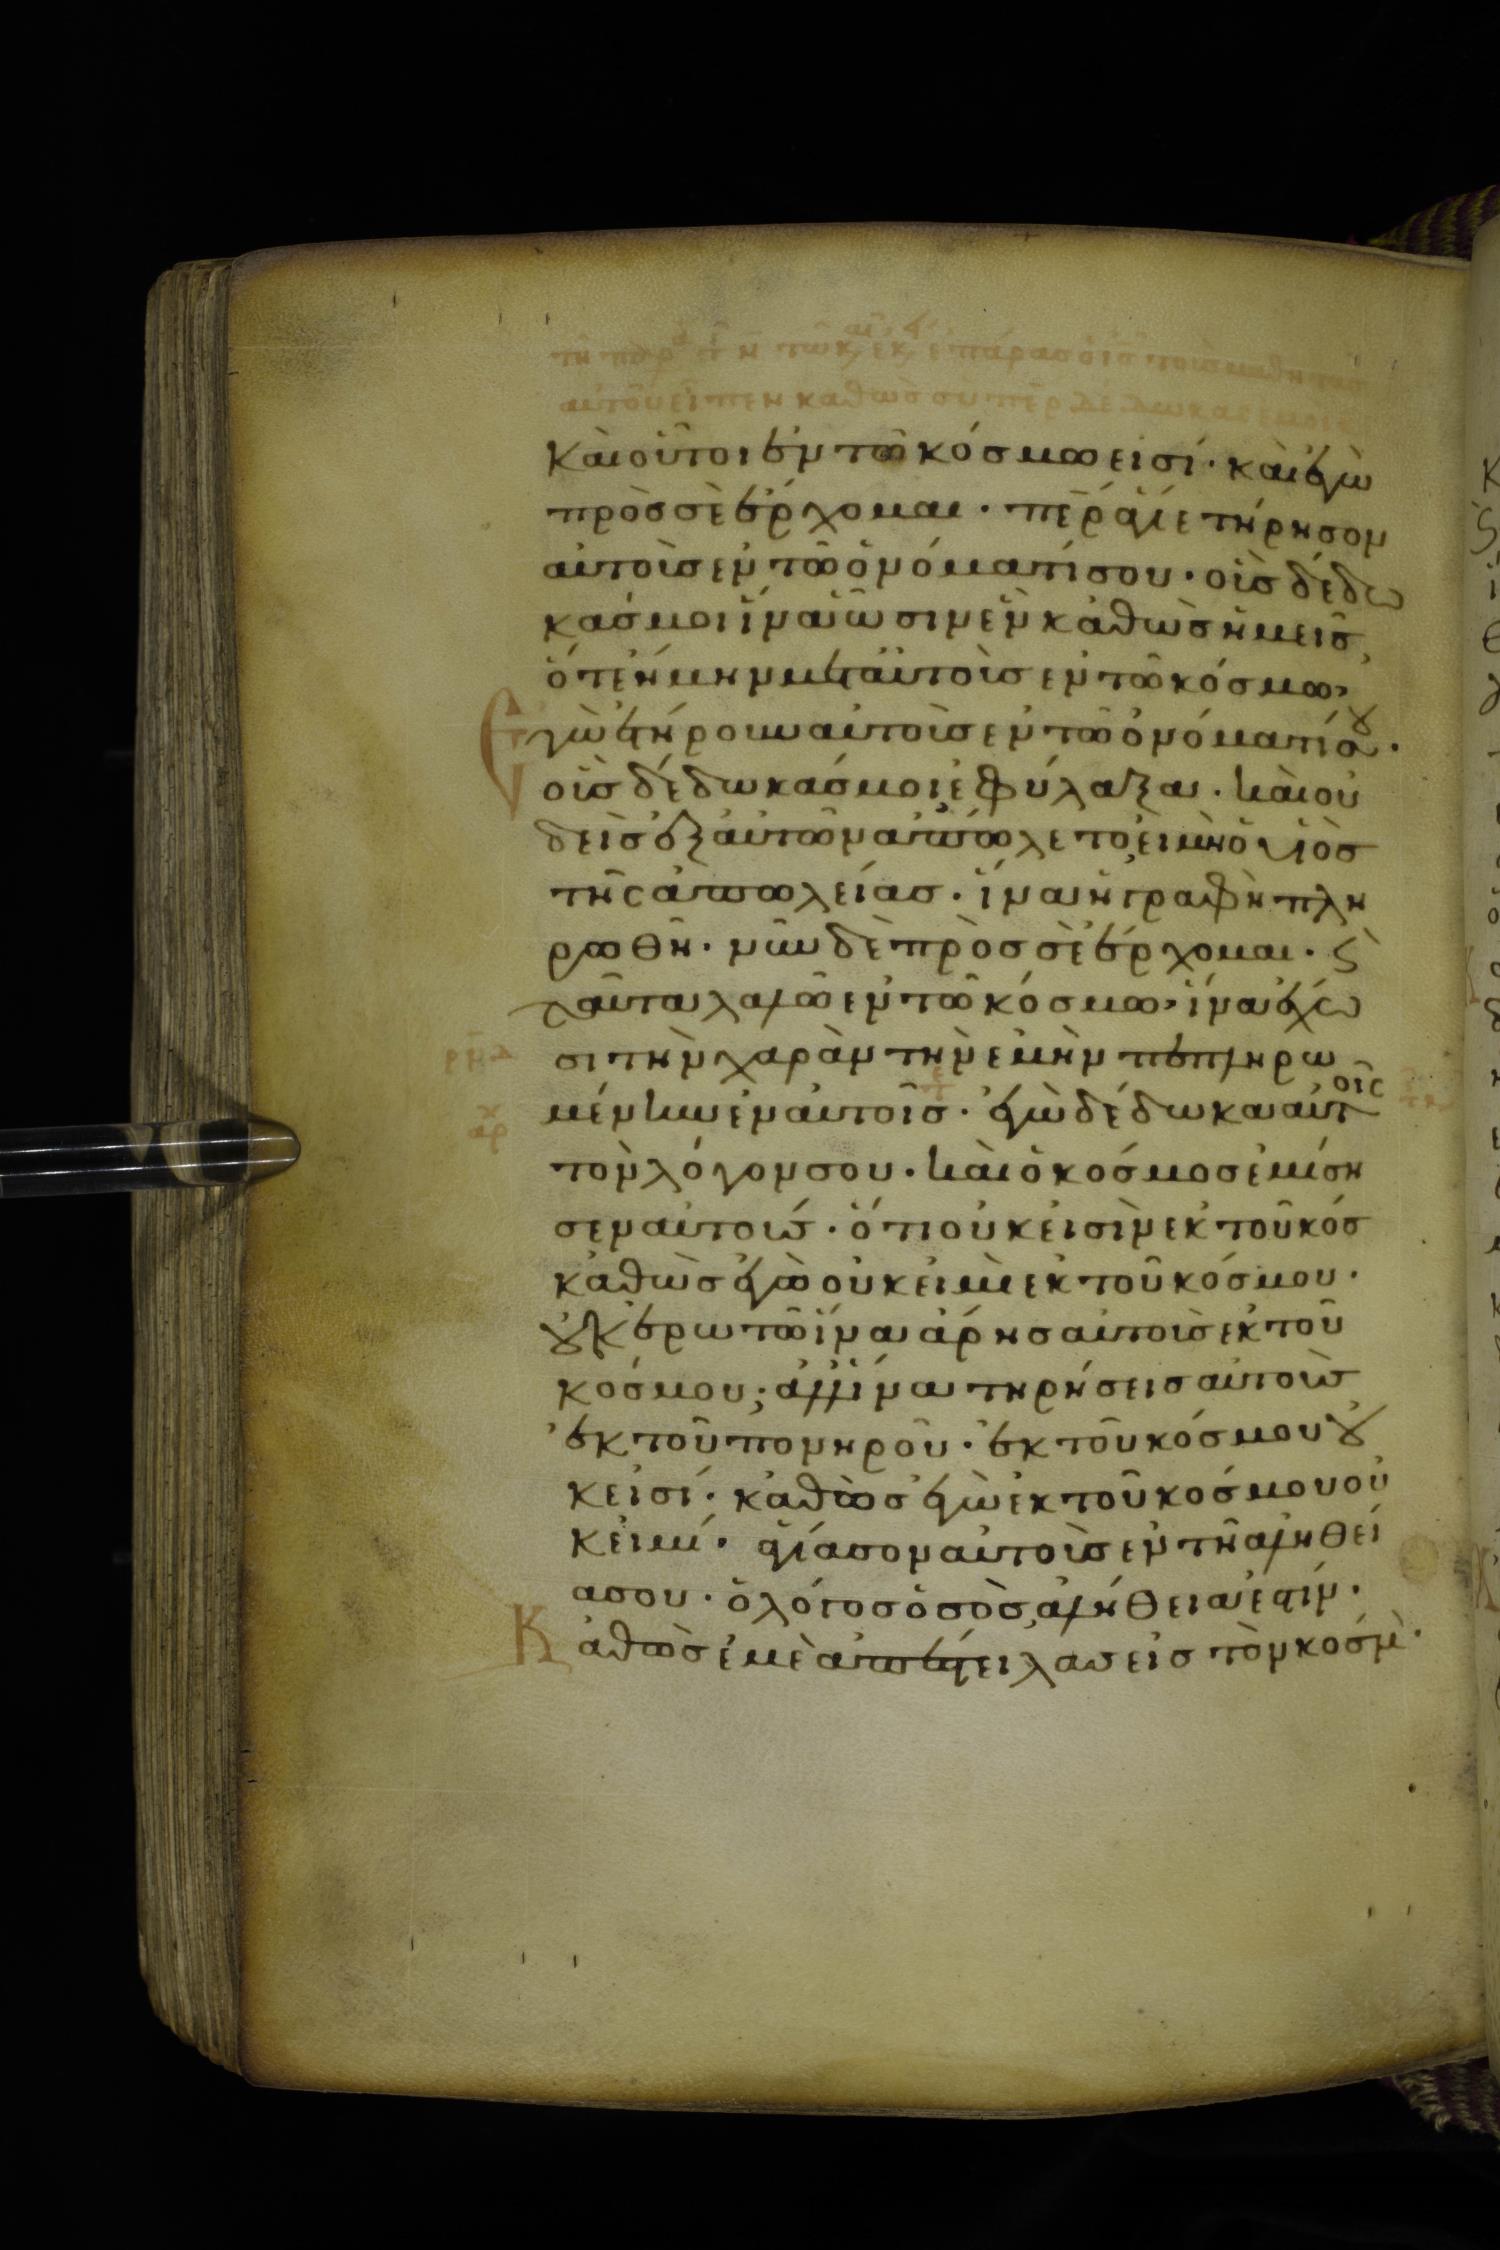 ἐπάρας ὁ ις τοὺς μαθητὰς
αὐτοῦ εἶπεν καθὼς σὺ περ δέδωκας ἐμοὶ
καὶ οὗτοι ἐν τῶ κόσμω εἰσί· καὶ ἐγὼ
πρὸς σὲ ἔρχομαι· περ ἅγιε τήρησον
αὐτοὺς ἐν τῶ ὀνόματί σου· οὓς δέδω
κάς μοι ἵνα ὦσιν ἓν καθὼς ἡμεῖς,
ὅτε ἤμην μετ αὐτοὺς ἐν τῶ κόσμω,
Ἐγὼ ἐτήρουν αὐτοὺς ἐν τῶ ὀνόματί σου·
οὓς δέδωκάς μοι ἐφύλαξα· καὶ οὐ
δεὶς ἐξ αὐτῶν ἀπώλετο, εἰ μὴ ὁ υἱὸς
τῆς ἀπωλείας· ἵνα ἡ γραφὴ πλη
ρωθῆ· νῦν δὲ πρὸς σὲ ἔρχομαι· ϛ
ταῦτα λαλῶ ἐν τῶ κόσμω, ἵνα ἔχω
σι τὴν χαρὰν τὴν ἐμὴν πεπληρω
μένην ἐν αὐτοῖς· ἐγὼ δέδωκα αὐτοῖς
τὸν λόγον σου· καὶ ὁ κόσμος ἐμίση
σεν αὐτούς· ὅτι οὐκ εἰσὶν ἐκ τοῦ κόσ
καθὼς ἐγὼ οὐκ εἰμὶ ἐκ τοῦ κόσμου·
οὐκ ἐρωτῶ ἵνα ἄρης αὐτοὺς ἐκ τοῦ
κόσμου; ἀλλ ἵνα τηρήσεις αὐτοὺς
ἐκ τοῦ πονηροῦ· ἐκ τοῦ κόσμου οὐ
κ εἰσί· καθὼς ἐγὼ ἐκ τοῦ κόσμου οὐ
κ εἰμί· ἁγίασον αὐτοὺς ἐν τῆ ἀληθεί
α σου· ὁ λόγος ὁ σὸς, ἀλήθεια ἐστίν·
Καθὼς ἐμὲ ἀπέστειλας εἰς τὸν κόσμ·